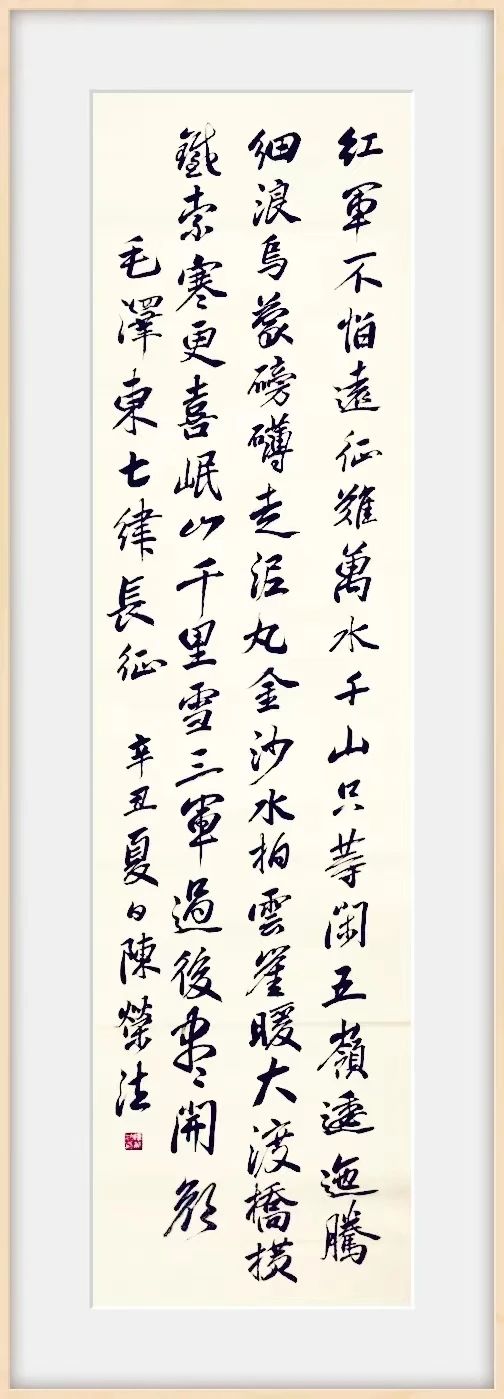 紅軍不怕遠征難萬水千山只等閑五嶺逶迤騰
細浪烏蒙磅礴走泥丸金沙水拍雲崖暖大渡橋橫
鐵索寒更喜岷山千里雪三軍過後盡開顏
毛澤東七律長征 辛丑夏日陳榮法